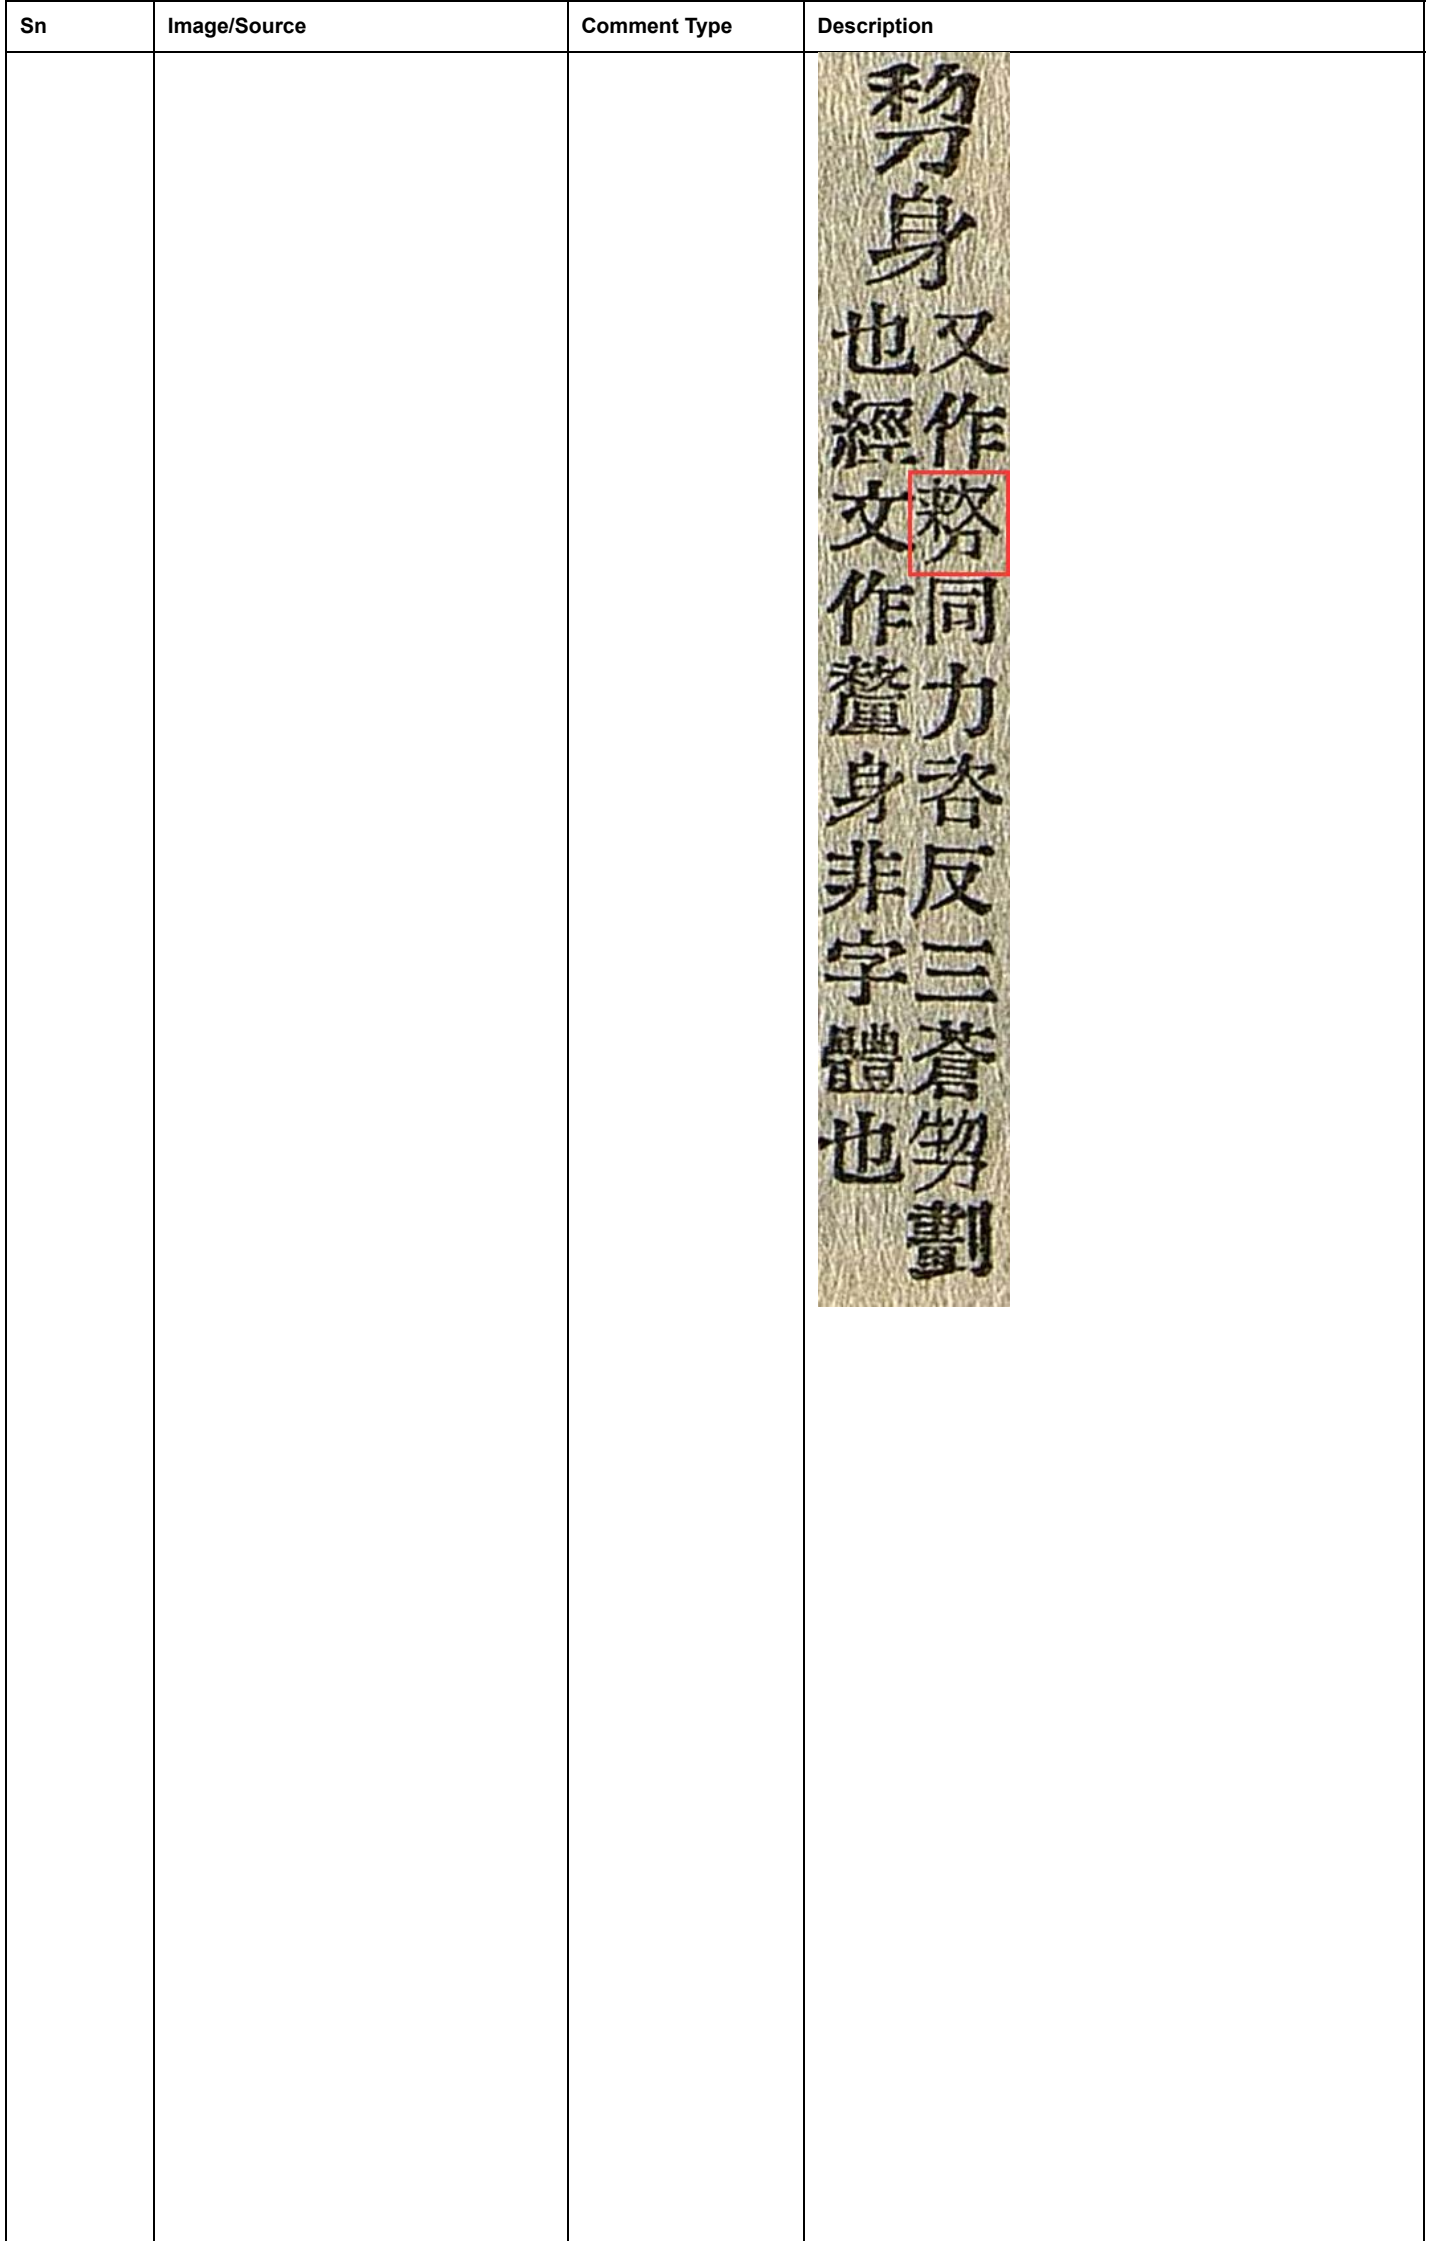 Sn
Image/Source
Comment Type
Description
身
又作同力咨反三蒼劃
也經文作釐身非字體也